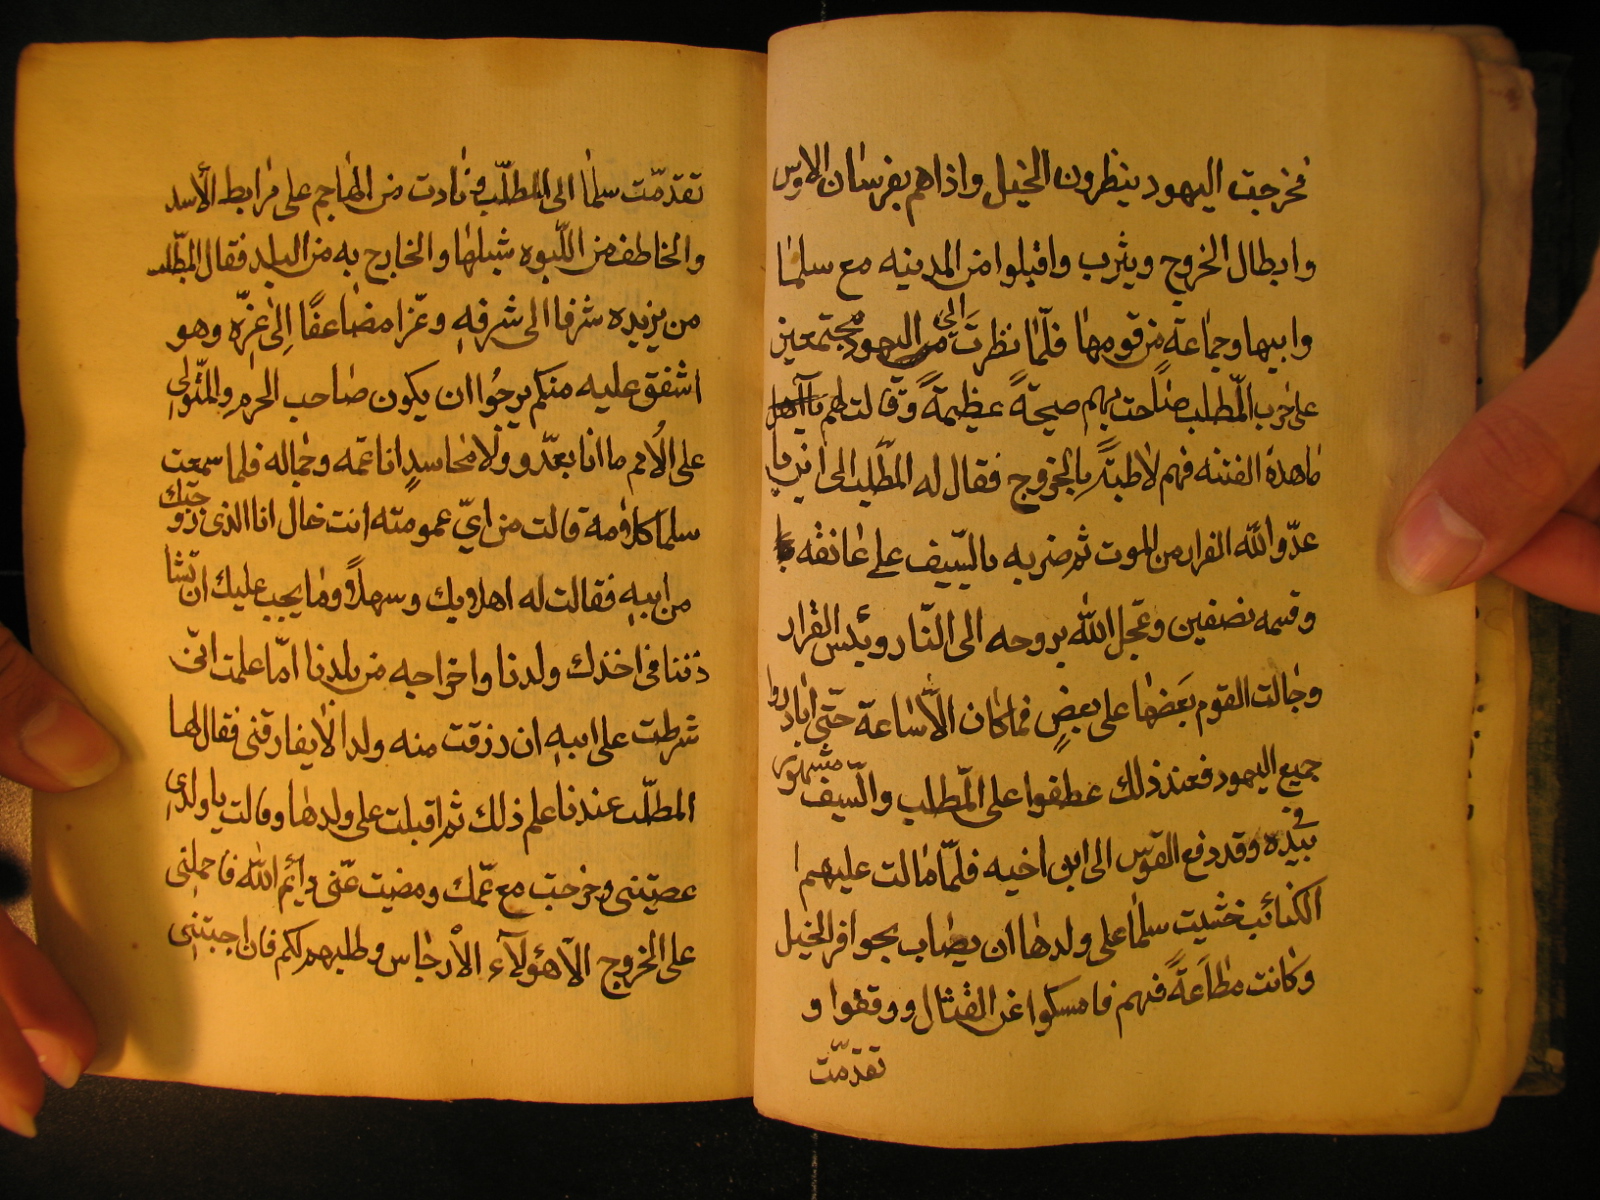 فخرجت اليهود ينظرون الخيل واذاهم بفرسان الاوس
وابطال الخروج ويثرب واقبلوا من المدينه مع سلما
وابيها وجماعة من قومها فلّما نظرت الى اليهود مجتمعين
على حرب المّطلب صاحت بهم صيحةً عظيمةً وقالت لهم
ما هدة الفتنه فهم لاطية بالخروج فقال له المطّلب الى اين يا
عدّو الله الفرار من الموت ثم ضربه بالسّيف على عاتقه
وقسمه نصفين وعجّل الله بروحه الى النّار وبئس القرار
وجالت القوم بَعَضها على بعضٍ فما كان الاّ ساعة حتى ابادوا
جميع اليهود فعند ذلك عطفوا على المّطلب والسّيف مشهور
في يده وقد دفع القوس الى ابن اخيه فلمّا مالت عليهم
الكتائب خشيت سلما على ولدها ان يصاب بحوافر الخيل
وكانت مطاعةً فيهم فامسكوا عن القتال ووقفوا و
تقدمّت
تقدمّت سلما الى المطلّب ونادت من الهاجم على مرابط الأسد
والخاطف من اللّبوه شبلها والخارج به من البلد فقال المطّلب
من يزيده شرفا الى شرفهِ وعزّا مضاعفًا اِلى عِزّه وهو
اشفق عليه منكم يرجُوا ان يكون صاحب الحرم والمتّولي
على الأُمم ما انا بعدّو ولا محاسدٍ انا عمّه وجماله فلما سمعت
سلما كلامه قالت من ايّ عمومته انت خال انا الذى زوجتك
من ابيهِ فقالت له اهلا وبك وسهلاً وما يجب عليك ان تشا
ذننا فى اخذك ولدنا واخراجه من بلدنا امّا علمت انّى
شرطت على ابيهِ ان رزقت منه ولدا لا يفارقنى فقال لها
المطلّب عندنا علم ذلك ثم اقبلت على ولدها وقالت يا ولدي
عصيتنى وخرجت مع عمّك ومضيت عنّى وأيم الله فاحملنى
على الخروج الا هؤلآء الأرجاس وطلبهم لكم فان اجبتنى